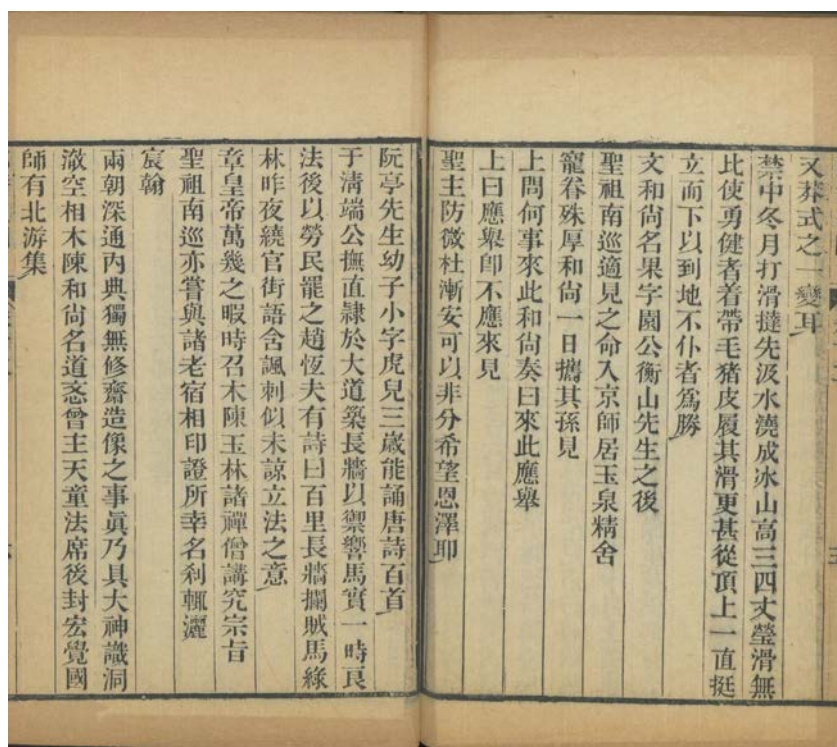 又莽式之一變耳
禁中冬月打滑撻先汲水澆成冰山高三四丈瑩滑無
比使勇健者着帶毛猪皮履其滑更甚從頂上一直挺
立而下以到地不仆者爲勝
文和尙名果字園公衡山先生之後
聖祖南巡適見之命入京師居玉泉精舍
寵眷殊厚和尙一日攜其孫見
上問何事來此和尙奏曰來此應舉
上曰應舉卽不應來見
聖主防微杜漸安可以非分希望恩澤耶
阮亭先生幼子小字虎兒三歲能誦唐詩百首
于清端公撫直隸於大道築長牆以禦響馬實一時良
法後以勞民罷之趙恆夫有詩曰百里長牆攔賊馬綠
林昨夜繞官街語含諷刺似未諒立法之意
章皇帝萬幾之暇時召木陳玉林諸禪僧講究宗旨
聖祖南巡亦嘗與諸老宿相印證所幸名刹輒灑
宸翰
兩朝深通內典獨無修齋造像之事眞乃具大神識洞
澈空相木陳和尙名道忞曾主天童法席後封宏覺國
師有北游集